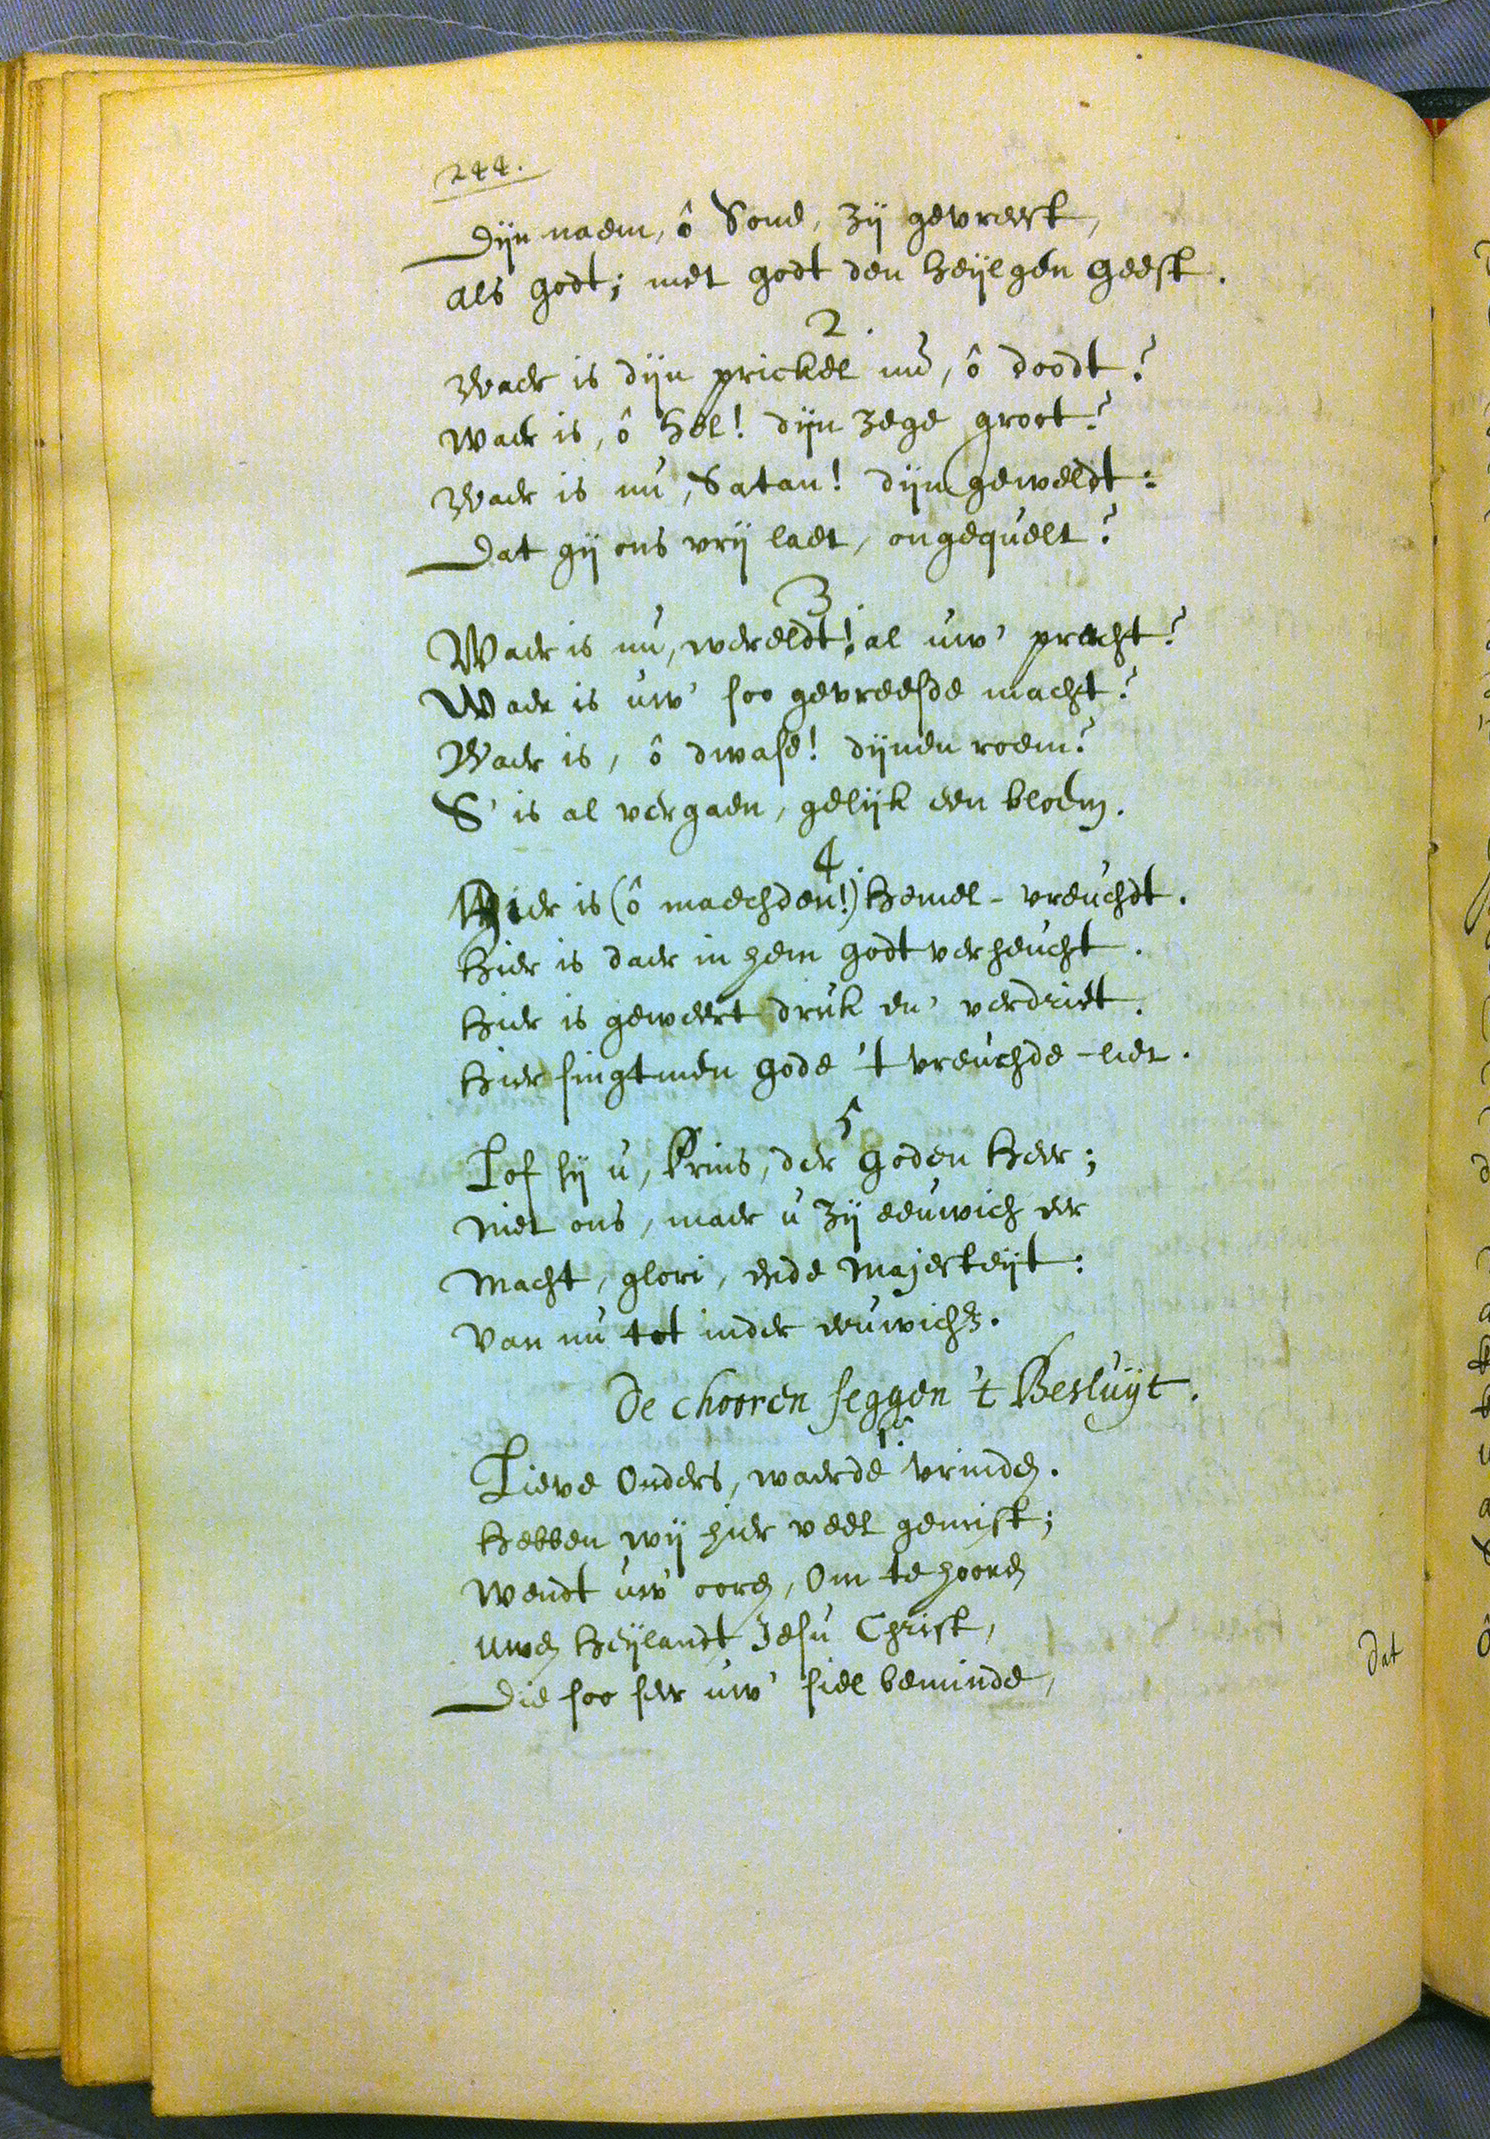 244.
Dijn naem, ô Sone, zij gevreest,
als godt; met godt den heijlgen geest.
2.
Waer is dijn prickel nu, ô doodt?
waer is, ô hel! dijn zege groot?
Waer is nu, Satan! dijn geweldt:
Dat gij ons vrij laet, ongequelt?
3.
Waer is nu, wereldt! al uw' pracht?
Waer is uw' soo gevreesde macht?
Waer is, ô dwase! dijnen roem?
S' is al vergaen, gelijk een bloem.
4.
Hier is (ô maechden!) hemel-vreuchdt.
hier is daer in hem godt verheucht.
hier is geweert druk en' verdriet.
hier singtmen gode 't vreuchde-liet.
5
Lof sij u, Prins, der goden heer;
niet ons, maer u zij eeuwich eer
macht, glori, ende majesteijt:
van nu tot inder eeuwicht.
De chooren seggen 't Besluijt.
1.
Lieve Ouders, waerde vrinden.
hebben wij hier veel gemist;
wendt uw' ooren, Om te hooren
uwen heijlandt Jesu Christ,
Die soo seer uw' siel beminde,
Dat